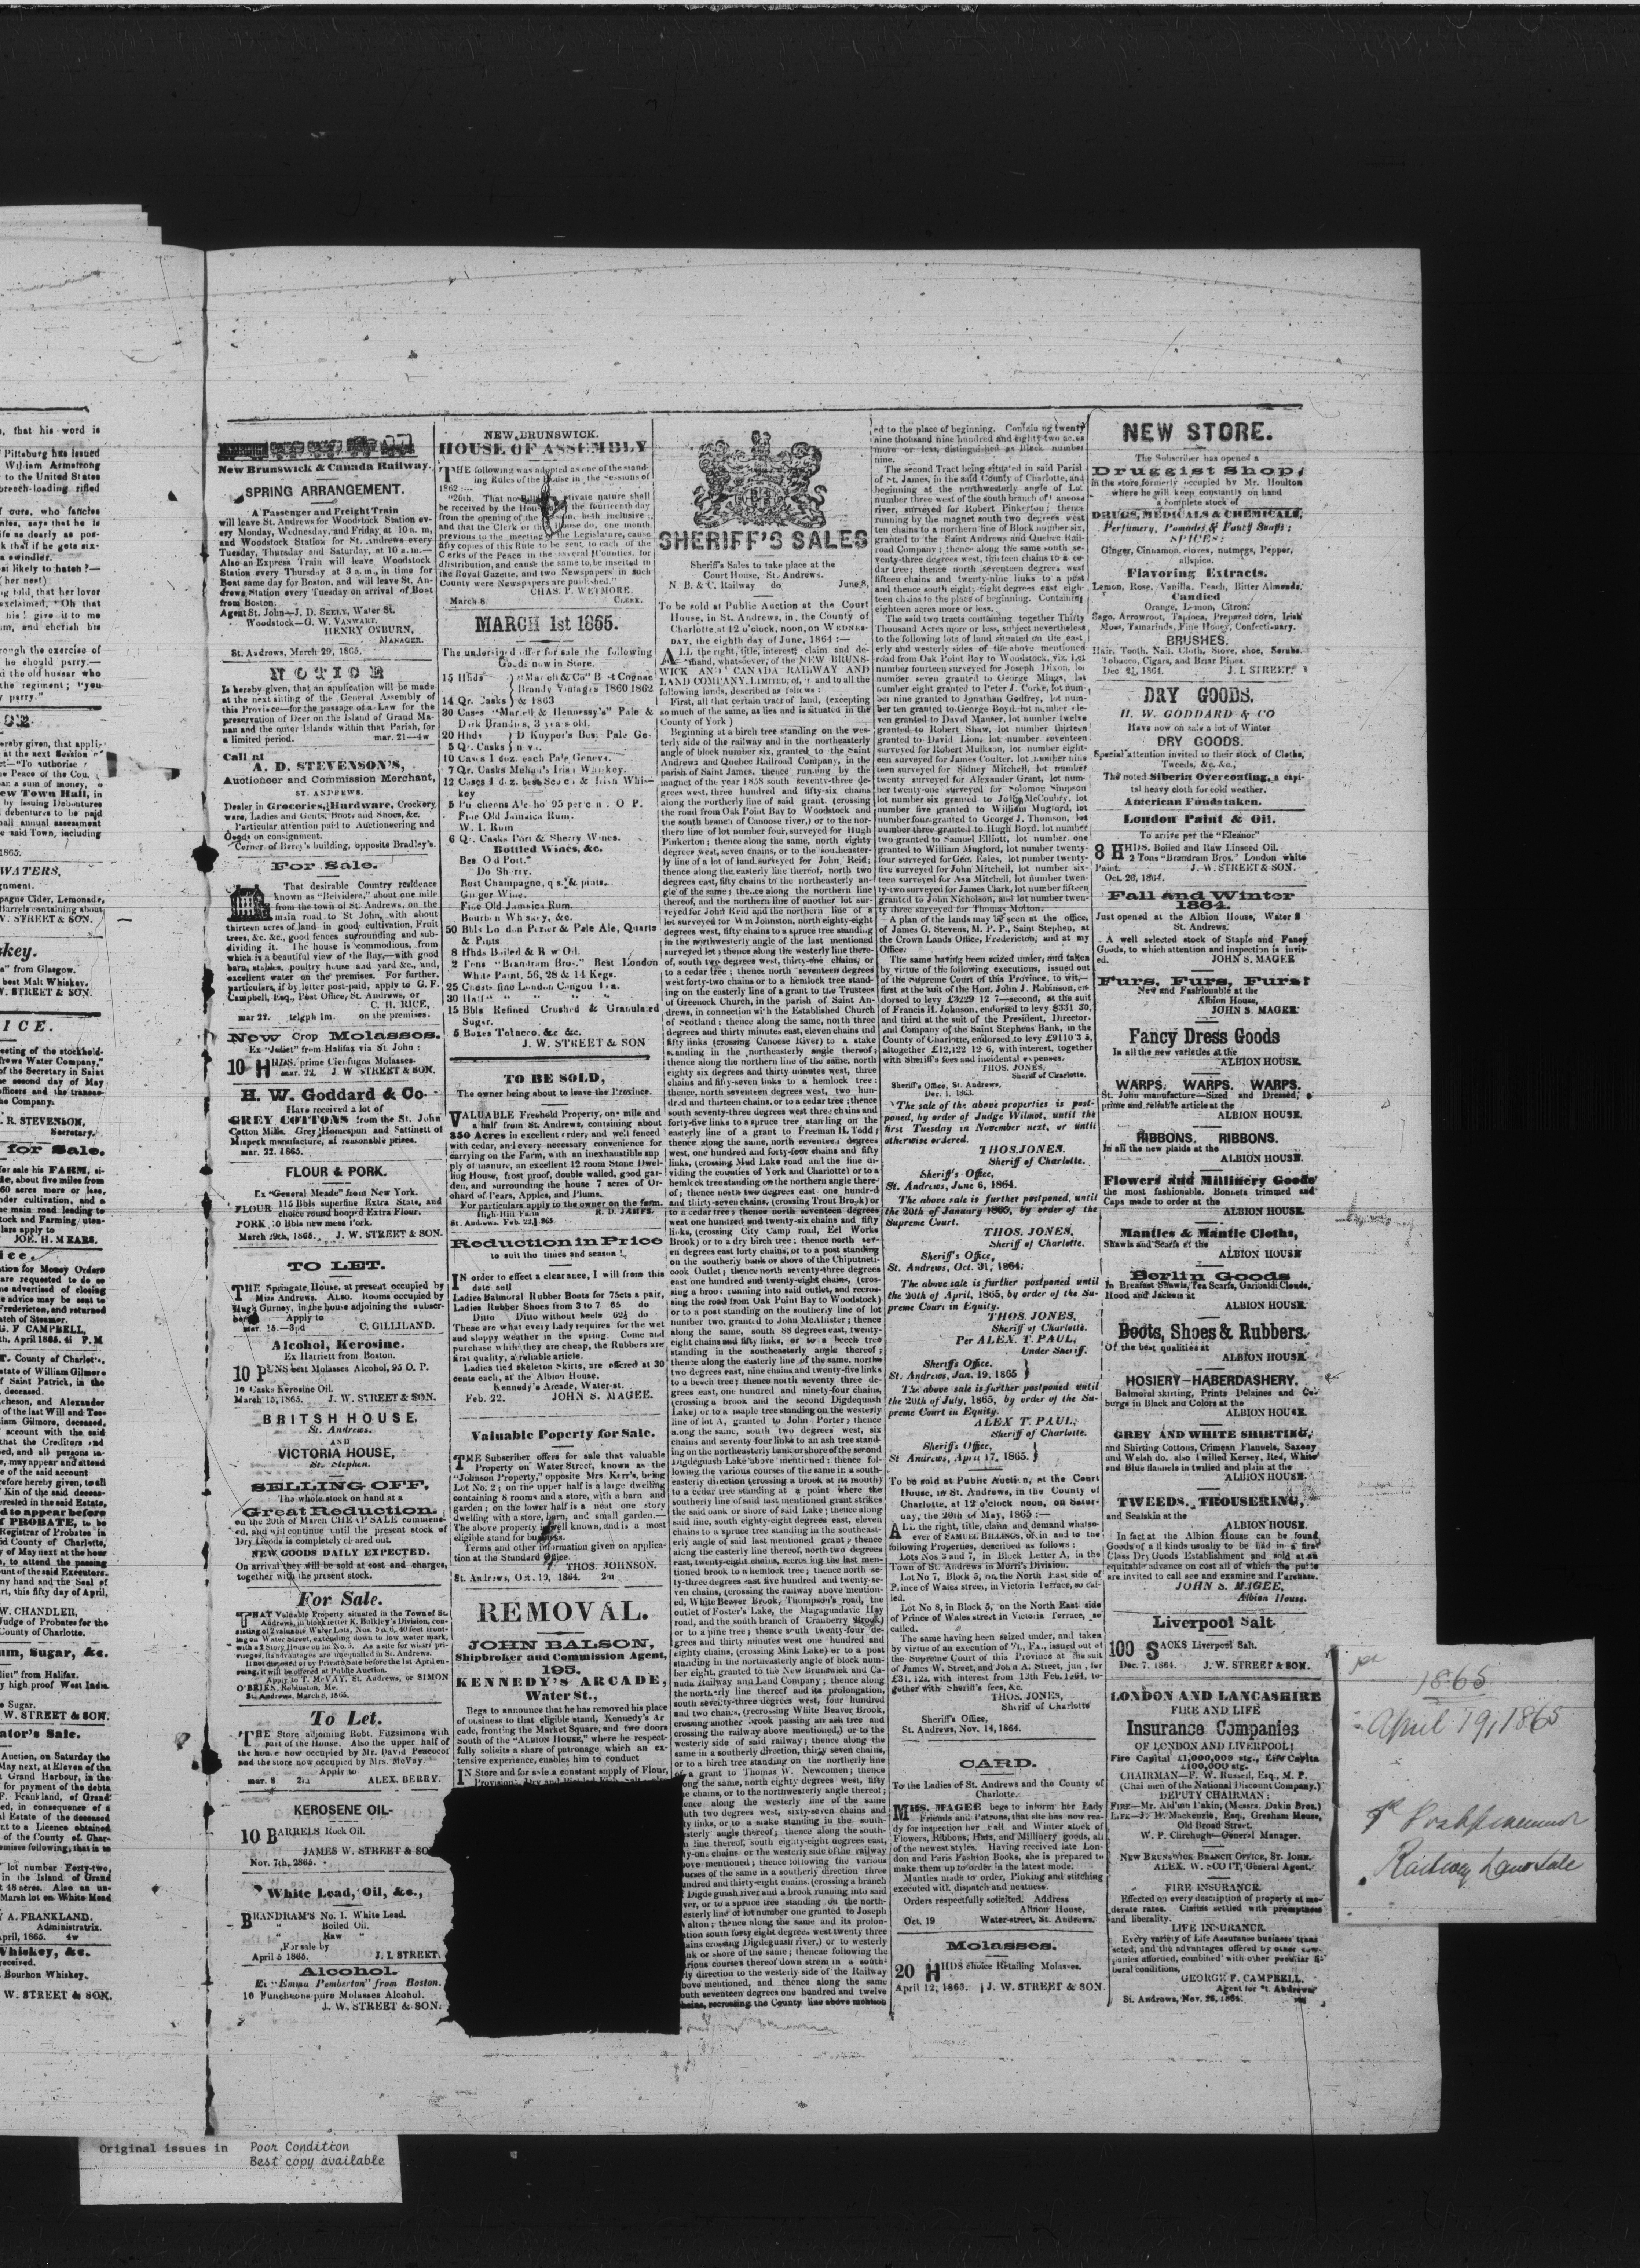 New Brunswick & Canada Railway.
SPRING ARRANGEMENT.
A Passenger and Freight Train
will leave St. Andrews for Woodstock Station ev-
ery Monday, Wednesday, and Friday, at 10 a. m,
and Woodstock Station for St. Andrews every
Tuesday, Thursday and Saturday, at 10 a. m.—
Also an Express Train will leave Woodstock
Station every Thursday at 3 a. m., in time for
Boat same day for Boston, and will leave St. An-
drews Station every Tuesday on arrival of Boat
from Boston.
Agent St. John—J. D. SEELY, Water St.
Woodstock—G. W. VANWART.
HENRY OSBURN,
MANAGER.
St. Andrews, March 29, 1865.
NOTICE
Is hereby given, that an application will be made
at the next sitting of the General Assembly of
this Province—for the passage of a Law for the
preservation of Deer on the Island of Grand Ma-
nan and the outer Islands within that Parish, for
a limited period. mar. 21—4w
Call at
A. D. STEVENSON'S,
Auctioneer and Commission Merchant,
ST. ANDREWS.
Dealer in Groceries, Hardware, Crockery
ware, Ladies and Gents, Boots and Shoes, &c.
Particular attention paid to Auctioneering and
Goods on consignment.
Corner of Berry's building, opposite Bradley's.
For Sale.
That desirable Country residence
known as "Belvidere," about one mile
from the town of St. Andrews, on the
main road to St John, with about
thirteen acres of land in good cultivation, Fruit
trees, &c. &c., good fences surrounding and sub-
dividing it. The house is commodious, from
which is a beautiful view of the Bay,—with good
barn, stables, poultry house and yard &c., and,
excellent water on the premises. For further,
particulars, if by letter post-paid, apply to G. F.
Campbell, Esq., Post Office, St. Andrews, or
C. H. RICE,
mar 22. telgph 1m. on the premises.
New Crop Molasses.
Ex "Juliet" from Halifax via St. John:
10 HHDS, prime Cienfugos Molasses.
mar. 22. J. W STREET & SON.
H. W. Goddard & Co
Have received a lot of
GREY COTTONS from the St. John
Cotton Mills. Grey Homespun and Sattinett of
Mispeck manufacture, at reasonable prices.
mar. 22. 1865.
FLOUR & PORK.
Ex "General Meade" from New York.
FLOUR 115 Bbls superfine Extra State, and
choice round hooped Extra Flour.
PORK 10 Bbls new mess Pork.
March 29th, 1865. J. W. STREET & SON.
TO LET.
THE Springate House, at present occupied by
Miss Andrews. ALSO. Rooms occupied by
Hugh Gurney, in the house adjoining the subscr-
Apply to
mar. 15.—3pd C. GILLILAND.
Alcohol, Kerosine.
Ex Harriett from Boston.
10 PUNS best Molasses Alcohol, 95 O. P.
10 Casks Kerosine Oil.
March 15, 1865. J. W. STREET & SON.
BRITSH HOUSE,
St. Andrews.
AND
VICTORIA HOUSE,
St. Stephen.
SELLING OFF,
The whole stock on hand at a
Great Reduction
on the 20th of March CHEAP SALE commenc-
ed, and will continue until the present stock of
Dry Goods is completely cleared out.
NEW GOODS DAILY EXPECTED.
On arrival they will be sold at cost and charges,
together with the present stock.
For Sale.
THAT Valuable Property situated in the Town of St.
Andrews, in block letter K, Bulkley's Division, con-
sisting of 2 valuable Water Lots, Nos. 5 & 6, 40 feet front-
ing on Water Street, extending down to low water mark,
with a 2 Story House on No. 5. As a site for wharf pri-
vileges, its advantages are unequalled in St. Andrews.
If not disposed of by Private Sale before the 1st April en-
suing, it will be offered at Public Auction.
Apply to T. McVAY, St. Andrews, or SIMON
O'BRIEN, Robinston, Me.
St. Andrews, March 8, 1865.
To Let.
THE Store adjoining Robt. Fitzsimons with
part of the House. Also the upper half of
the house now occupied by Mr. David Peacocof
and the store now occupied by Mrs. McVay.
Apply to
mar. 8 2m ALEX. BERRY.
KEROSENE OIL-
10 BARRELS Rock Oil.
JAMES W. STREET & SO
Nov. 7th, 2865.
White Lead, Oil, &c.,
BRANDRAM'S No. 1. White Lead.
" Boiled Oil.
" Raw "
For sale by
April 5 1865. J. L STREET.
Alcohol.
Ex "Emma Pemberton" from Boston.
10 Puncheons pure Molasses Alcohol.
J. W. STREET & SON.
NEW BRUNSWICK.
HOUSE OF ASSEMBLY
THE following was adopted as one of the stand-
ing Rules of the House in the Sessions of
1862:—
"26th. That no Bill private nature shall
be received by the Hou the fourteenth day
from the opening of the on, both inclusive;
and that the Clerk of th ouse do, one month
previous to the meeting the Legislature, cause
fifty copies of this Rule to be sent, to each of the
Clerks of the Peace in the several Counties, for
distribution, and cause the same to be inserted in
the Royal Gazette, and two Newspapers in such
County were Newspapers are published."
CHAS. P. WETMORE,
March 8. CLERK.
MARCH 1st 1865.
The undersigned offer for sale the following
Goods now in Store.
15 Hhds "Martell & Co" Best Cognac
Brandy Vintages 1860 1862
14 Qr. Casks & 1863
30 Cases "Martell & Hennessy's" Pale &
Dark Brandies, 3 years old.
20 Hhds D Kuyper's Best Pale Ge-
5 Qr. Casks neva.
10 Cases 1 doz. each Pale Geneva.
7 Qr. Casks Mehan's Irish Whiskey.
12 Cases 1 doz. best Scotch & Irish Whis-
key
5 Puncheons Alcohol 95 per cent. O P.
Fine Old Jamaica Rum.
W. I. Rum
6 Qr. Casks Port & Sherry Wines.
Bottled Wines, &c.
Best Old Port."
Do Sherry.
Best Champagne, qts. & pints..
Ginger Wine.
Fine Old Jamaica Rum.
Bourbon Whiskey, &c.
50 Bbls London Porter & Pale Ale, Quarts
& Pints
8 Hhds Boiled & Raw Oil.
2 Tons "Brandram Bros." Best London
White Paint, 56, 28 & 14 Kegs.
25 Chests fine London Congou Tea.
30 Half " " " "
15 Bbls Refined Crushed & Granulated
Sugar.
5 Boxes Tobacco, &c &c.
J. W. STREET & SON
TO BE SOLD,
The owner being about to leave the Province.
VALUABLE Freehold Property, one mile and
a half from St. Andrews, containing about
350 Acres in excellent order, and well fenced
with cedar, and every necessary convenience for
carrying on the Farm, with an inexhaustible sup
ply of manure, an excellent 12 room Stone Dwel-
ling House, frost proof, double walled, good gar-
den, and surrounding the house 7 acres of Or-
chard of Pears, Apples, and Plums.
For particulars apply to the owner on the farm.
High-Hill Farm R. D. JAMES.
St. Andrews. Feb. 22, 1865.
Reduction in Price
to suit the times and season!
IN order to effect a clearance, I will from this
date sell
Ladies Balmoral Rubber Boots for 75cts a pair,
Ladies Rubber Shoes from 3 to 7 65 do
Ditto Ditto without heels 62½ do
These are what every Lady requires for the wet
and sloppy weather in the spring. Come and
purchase while they are cheap, the Rubbers are
first quality, a reliable article.
Ladies tied skeleton Skirts, are offered at 30
cents each, at the Albion House,
Kennedy's Arcade, Water-st.
Feb. 22. JOHN S. MAGEE.
Valuable Poperty for Sale.
THE Subscriber offers for sale that valuable
Property on Water Street, known as the
"Johnson Property," opposite Mrs. Kerr's, being
Lot No. 2; on the upper half is a large dwelling
containing 8 rooms and a store, with a barn and
garden; on the lower half is a neat one story
dwelling with a store, barn, and small garden.—
The above property well known, and is a most
eligible stand for business.
Terms and other information given on applica-
tion at the Standard Office.
THOS. JOHNSON.
St. Andrews, Oct. 19, 1864. 2m
REMOVAL.
JOHN BALSON,
Shipbroker and Commission Agent,
195.
KENNEDY'S ARCADE,
Water St.,
Begs to announce that he has removed his place
of business to that eligible stand, Kennedy's Ar
cade, fronting the Market Square, and two doors
South of the "ALBION HOUSE," where he respect-
fully solicits a share of patronage which an ex-
tensive experience, enables him to conduct
IN Store and for sale a constant supply of Flour,
SHERIFF'S SALES
Sheriff's Sales to take place at the
Court House, St. Andrews.
N. B. & C. Railway do June 8,
To be sold at Public Auction at the Court
House, in St. Andrews, in the County of
Charlotte, at 12 o'clock, noon, on WEDNES-
DAY, the eighth day of June, 1864:—
ALL the right, title, interest, claim and de-
mand, whatsoever, of the NEW BRUNS-
WICK AND CANADA RAILWAY AND
LAND COMPANY, LIMITED, of, and to all the
following lands, described as follows:
First, all that certain tract of land, (excepting
so much of the same, as lies and is situated in the
County of York)
Beginning at a birch tree standing on the wes-
terly side of the railway and in the northeasterly
angle of block number six, granted to the Saint
Andrews and Quebec Railroad Company, in the
parish of Saint James, thence running by the
magnet of the year 1858 south seventy-three de-
grees west, three hundred and fifty-six chains
along the northerly line of said grant, (crossing
the road from Oak Point Bay to Woodstock and
the south branch of Canoose river,) or to the nor-
there line of lot number four, surveyed for Hugh
Pinkerton; thence along the same, north eighty
degrees west, seven chains, or to the southeaster-
ly line of a lot of land surveyed for John Reid;
thence along the easterly line thereof, north two
degrees east, fifty chains to the northeasterly an-
gle of the same; thence along the northern line
thereof, and the northern line of another lot sur-
veyed for John Reid and the northern line of a
lot surveyed for Wm Johnston, north eighty-eight
degrees west, fifty chains to a spruce tree standing
in the northwesterly angle of the last mentioned
surveyed lot; thence along the westerly line there-
of, south two degrees west, thirty-one chains, or
to a cedar tree; thence north seventeen degrees
west forty-two chains or to a hemlock tree stand-
ing on the easterly line of a grant to the Trustees
of Greenock Church, in the parish of Saint An-
drews, in connection with the Established Church
of Scotland; thence along the same, north three
degrees and thirty minutes east, eleven chains and
fifty links (crossing Canoose River) to a stake
standing in the northeasterly angle thereof;
thence along the northern line of the same, north
eighty six degrees and thirty minutes west, three
chains and fifty-seven links to a hemlock tree:
thence, north seventeen degrees west, two hun-
dred and thirteen chains, or to a cedar tree; thence
south seventy-three degrees west three chains and
forty-five links to a spruce tree standing on the
easterly line of a grant to Freeman H. Todd;
thence along the same, north seventeen degrees
west, one hundred and forty-four chains and fifty
links, (crossing Mud Lake road and the line di-
viding the counties of York and Charlotte) or to a
hemlock tree standing on the northern angle there
of; thence north two degrees east, one hundred
and thirty-seven chains, (crossing Trout Brook) or
to a cedar tree; thence north seventeen degrees
west one hundred and twenty-six chains and fifty
links, (crossing City Camp road, Eel Works
Brook) or to a dry birch tree; thence north sev-
en degrees east forty chains, or to a post standing
on the southerly bank or shore of the Chiputneti-
cook Outlet; thence north seventy-three degrees
east one hundred and twenty-eight chains, (cros-
sing a brook running into said outlet, and recros-
sing the road from Oak Point Bay to Woodstock)
or to a post standing on the southerly line of lot
number two, granted to John McAlister; thence
along the same, south 88 degrees east, twenty-
eight chains and fifty links, or to a beech tree
standing in the southeasterly angle thereof;
thence along the easterly line of the same, north
two degrees east, nine chains and twenty-five links
to a beech tree; thence north seventy three de-
grees east, one hundred and ninety-four chains,
(crossing a brook and the second Digdequash
Lake) or to a maple tree standing on the westerly
line of lot A, granted to John Porter; thence
along the same, south two degrees west, six
chains and seventy-four links to an ash tree stand-
ing on the northeasterly bank or shore of the second
Digdequash Lake above mentioned; thence fol-
lowing the various courses of the same in a south-
easterly direction (crossing a brook at its mouth)
to a cedar tree standing at a point where the
southerly line of said last mentioned grant strikes
the said bank or shore of said Lake; thence along
said line, south eighty-eight degrees east, eleven
chains to a spruce tree standing in the southeast-
erly angle of said last mentioned grant; thence
along the easterly line thereof, north two degrees
east, twenty-eight chains, recrossing the last men-
tioned brook to a hemlock tree; thence north se-
ty-three degrees east five hundred and twenty-se-
ven chains, (crossing the railway above mention-
ed, White Beaver Brook, Thompson's road, the
outlet of Foster's Lake, the Magaguadavic Hay
road, and the south branch of Cranberry Brook)
or to a pine tree; thence south twenty-four de-
grees and thirty minutes west one hundred and
eighty chains, (crossing Mink Lake) or to a post
standing in the northeasterly angle of block num-
ber eight, granted to the New Brunswick and Ca-
nada Railway and Land Company; thence along
the northerly line thereof and its prolongation,
south seventy-three degrees west, four hundred
and two chains, (recrossing White Beaver Brook,
crossing another brook passing an ash tree and
crossing the railway above mentioned,) or to the
westerly side of said railway; thence along the
same in a southerly direction, thirty seven chains,
or to a birch tree standing on the northerly line
of a grant to Thomas W. Newcomen; thence
ong the same, north eighty degrees west, fifty
e chains, or to the northwesterly angle thereof;
ence along the westerly line of the same
uth two degrees west, sixty-seven chains and
ty links, or to a stake standing in the south-
sterly angle thereof; thence along the south-
n line thereof, south eighty-eight degrees east,
ty-one chains or the westerly side of the railway
ove mentioned; thence following the various
urses of the same in a southerly direction three
undred and thirty-eight chains, (crossing a branch
Digdeguash river and a brook running into said
ver, or to a spruce tree standing on the north-
esterly line of lot number one granted to Joseph
alton; thence along the same and its prolon-
ation south forty eight degrees west twenty three
ains crossing Digdeguash river,) or to westerly
nk or shore of the same; thence following the
rious courses thereof down strem in a south-
ly direction to the westerly side of the Railway
bove mentioned, and thence along the same
outh seventeen degrees one hundred and twelve
hains, recrossing the County line above mention
ed to the place of beginning. Containing twenty
nine thousand nine hundred and eighty-two acres
more or less, distinguished as Block number
nine.
The second Tract being situated in said Parish
of St. James, in the said County of Charlotte, and
beginning at the northwesterly angle of Lot
number three west of the south branch of Canoose
river, surveyed for Robert Pinkerton; thence
running by the magnet south two degrees west
ten chains to a northern line of Block number six,
granted to the Saint Andrews and Quebec Rail-
road Company; thence along the same south se-
venty-three degrees west, thirteen chains to a ce-
dar tree; thence north seventeen degrees west
fifteen chains and twenty-nine links to a post
and thence south eighty eight degrees east eigh-
teen chains to the place of beginning. Containing
eighteen acres more or less.
The said two tracts containing together Thirty
Thousand Acres more or less, subject nevertheless
to the following lots of land situated on the east
erly and westerly sides of the above mentioned
road from Oak Point Bay to Woodstock, viz. Lot
number fourteen surveyed for Joseph Dixon, lot
number seven granted to George Mings, lot
number eight granted to Peter J. Corke, lot num-
ber nine granted to Jonathan Godfrey, lot num-
ber ten granted to George Boyd, lot number ele-
ven granted to David Mauser, lot number twelve
granted to Robert Shaw, lot number thirteen
granted to David Lion, lot number seventeen
surveyed for Robert Mulkson, lot number eight-
een surveyed for James Coulter, lot number nine
teen surveyed for Sidney Mitchell, lot number
twenty surveyed for Alexander Grant, lot num-
ber twenty-one surveyed for Solomon Simpson
lot number six granted to John McCoubry, lot
number five granted to William Mugford, lot
number four granted to George J. Thomson, lot
number three granted to Hugh Boyd, lot number
two granted to Samuel Elliott, lot number one
granted to William Mugford, lot number twenty-
four surveyed for Geo. Eales, lot number twenty-
five surveyed for John Mitchell, lot number six-
teen surveyed for Asa Mitchell, lot number twen
ty-two surveyed for James Clark, lot number fifteen
granted to John Nicholson, and lot number twen-
ty three surveyed for Thomas Molton.
A plan of the lands may be seen at the office,
of James G. Stevens, M. P. P., Saint Stephen, at
the Crown Lands Office, Fredericton, and at my
Office.
The same having been seized under, and taken
by virtue of the following executions, issued out
of the Supreme Court of this Province, to wit,—
first at the suit of the Hon. John J. Robinson, en-
dorsed to levy £3229 12 7—second, at the suit
of Francis H. Johnson, endorsed to levy £331 30,
and third at the suit of the President, Director-
and Company of the Saint Stephens Bank, in the
County of Charlotte, endorsed to levy £9110 3 5,
altogether £12,122 12 6, with interest, together
with Sheriff's fees and incidental expenses.
THOS. JONES,
Sheriff of Charlotte.
Sheriff's Office, St. Andrews,
Dec. 1. 1863.
The sale of the above properties is post-
poned, by order of Judge Wilmot, until the
first Tuesday in November next, or until
otherwise ordered.
THOS. JONES.
Sheriff of Charlotte.
Sheriff's Office,
St. Andrews, June 6, 1864.
The above sale is further postponed, until
the 20th of January 1865, by order of the
Supreme Court.
THOS. JONES,
Sheriff of Charlotte.
Sheriff's Office,
St. Andrews, Oct. 31, 1864.
The above sale is further postponed until
the 20th of April, 1865, by order of the Su-
preme Court in Equity.
THOS. JONES,
Sheriff of Charlotte.
Per ALEX. T. PAUL,
Under Sheriff.
Sheriff's Office,
St. Andrews, Jan. 19. 1865
The above sale is further postponed until
the 20th of July, 1865, by order of the Su-
preme Court in Equity.
ALEX T. PAUL,
Sheriff of Charlotte.
Sheriff's Office,
St Andrews, April 17, 1865.
To be sold at Public Auction, at the Court
House, in St. Andrews, in the County of
Charlotte, at 12 o'clock noon, on Satur-
day, the 20th of May, 1865:—
ALL the right, title, claim, and demand whatso-
ever of SAMUEL BILLINGS, of, in and to the
following Properties, described as follows:
Lots Nos 3 and 7, in Block Letter A, in the
Town of St. Andrews in Morri's Division.
Lot No 7, Block 5, on the North East side of
Prince of Wales street, in Victoria Terrace, so cal-
led.
Lot No 8, in Block 5, on the North East side
of Prince of Wales street in Victoria Terrace, so
called.
The same having been seized under, and taken
by virtue of an execution of Fi, Fa., issued out of
the Supreme Court of this Province at the suit
of James W. Street, and John A. Street, jun, for
£31. 12s, with interest from 13th Feb. 1864, to-
gether with Sheriff's fees, &c.
THOS. JONES,
Sheriff of Charlotte
Sheriff's Office,
St. Andrews, Nov. 14, 1864.
CARD.
To the Ladies of St. Andrews and the County of
Charlotte.
MRS. MAGEE begs to inform her Lady
Friends and Patrons, that she has now rea-
dy for inspection her Fall and Winter stock of
Flowers, Ribbons, Hats, and Millinery goods, all
of the newest styles. Having received late Lon-
don and Paris Fashion Books, she is prepared to
make them up to order in the latest mode.
Mantles made to order, Pinking and stitching
executed with dispatch and neatness.
Orders respectfully solicited. Address
Albion House,
Oct, 19 Water-street, St. Andrews.
Molasses.
20 HHDS choice Retailing Molasses.
April 12, 1863. J. W. STREET & SON.
NEW STORE.
The Subscriber has opened a
Druggist Shop,
in the store formerly occupied by Mr. Houlton
where he will keep constantly on hand
a complete stock of
DRUGS, MEDICALS & CHEMICALS,
Perfumery, Pomades, & Fancy Soaps;
SPICES:
Ginger, Cinnamon, cloves, nutmegs, Pepper,
allspice.
Flavoring Extracts.
Lemon, Rose, Vanilla, Peach, Bitter Almonds.
Candied
Orange, Lemon, Citron.
Sago, Arrowroot, Tapioca, Prepared corn, Irish
Moss, Tamarinds, Fine Honey, Confectionary.
BRUSHES.
Hair, Tooth, Nail, Cloth, Stove, shoe, Scrubs.
Tobacco, Cigars, and Briar Pipes.
Dec 21, 1864. J. L STREET.
DRY GOODS.
H. W. GODDARD & CO
Have now on sale a lot of Winter
DRY GOODS.
Special attention invited to their stock of Cloths,
Tweeds, &c. &c.,
The noted Siberia Overcoating, a capi-
tal heavy cloth for cold weather.
American Funds taken.
London Paint & Oil.
To arrive per the "Eleanor"
8 HHDS, Boiled and Raw Linseed Oil.
2 Tons "Brandram Bros." London white
Paint. J. W. STREET & SON.
Oct. 26, 1864.
Fall and Winter
1864.
Just opened at the Albion House, Water S
St. Andrews,
A well selected stock of Staple and Fancy
Goods, to which attention and inspection is invit-
ed. JOHN S. MAGEE
Furs, Furs, Furs!
New and Fashionable at the
Albion House,
JOHN S. MAGEE
Fancy Dress Goods
In all the new varieties at the
ALBION HOUSE.
WARPS. WARPS. WARPS.
St. John manufacture—Sized and Dressed, a
prime and reliable article at the
ALBION HOUSE.
RIBBONS. RIBBONS.
In all the new plaids at the
ALBION HOUSE.
Flowers and Millinery Goods
the most fashionable. Bonnets trimmed and
Caps made to order at the
ALBION HOUSE.
Mantles & Mantle Cloths,
Shawls and Scarfs at the
ALBION HOUSE
Berlin Goods
In Breafast Shawls, Tea Scarfs, Garibaldi Clouds,
Hood and Jackets at
ALBION HOUSE.
Boots, Shoes & Rubbers.
Of the best qualities at
ALBION HOUSE.
HOSIERY—HABERDASHERY.
Balmoral skirting, Prints Delaines and Co-
burgs in Black and Colors at the
ALBION HOUSE.
GREY AND WHITE SHIRTING,
and Shirting Cottons, Crimean Flannels, Saxony
and Welsh do. also Twilled Kersey, Red, White
and Blue flannels in twilled and plain at the
ALBION HOUSE.
TWEEDS, TROUSERING,
and Sealskin at the
ALBION HOUSE.
In fact at the Albion House can be found,
Goods of all kinds usualy to be had in a first
Class Dry Goods Establishment and sold at an
equitable advance on cost all of which the public
are invited to call see and examine and Purchase.
JOHN S. MAGEE,
Albion House.
Liverpool Salt
100 SACKS Liverpool Salt.
Dec. 7, 1864. J. W. STREET & SON.
LONDON AND LANCASHIRE
FIRE AND LIFE
Insurance Companies
OF LONDON AND LIVERPOOL!
Fire Capital £1,000,000 stg., Life Capita
£100,000 stg.
CHAIRMAN—F. W. Russell, Esq., M. P.
(Chai men of the National Discount Company.)
DEPUTY CHAIRMAN:
FIRE—Mr. Ald'mn Dakin, (Messrs. Dakin Bros.)
LIFE—J. H. Mackenzie, Esq., Gresham House,
Old Broad Street.
W. P. Clirehugh—General Manager.
NEW BRUNSWICK BRANCH OFFICE, ST. JOHN.
ALEX. W. SCOTT, General Agent.
FIRE INSURANCE.
Effected on every description of property at mo-
derate rates. Claims settled with promptness
and liberality.
LIFE INSURANCE.
Every variety of Life Assurance business trans
acted, and the advantages offered by other com-
panies afforded, combined with other peculiar li-
beral conditions,
GEORGE F. CAMPBELL,
Agent for St. Andrews
St. Andrews, Nov. 23, 1864.
1865
April 19, 1865
Railway Land Sale
Original issues in Poor Condition
Best copy available